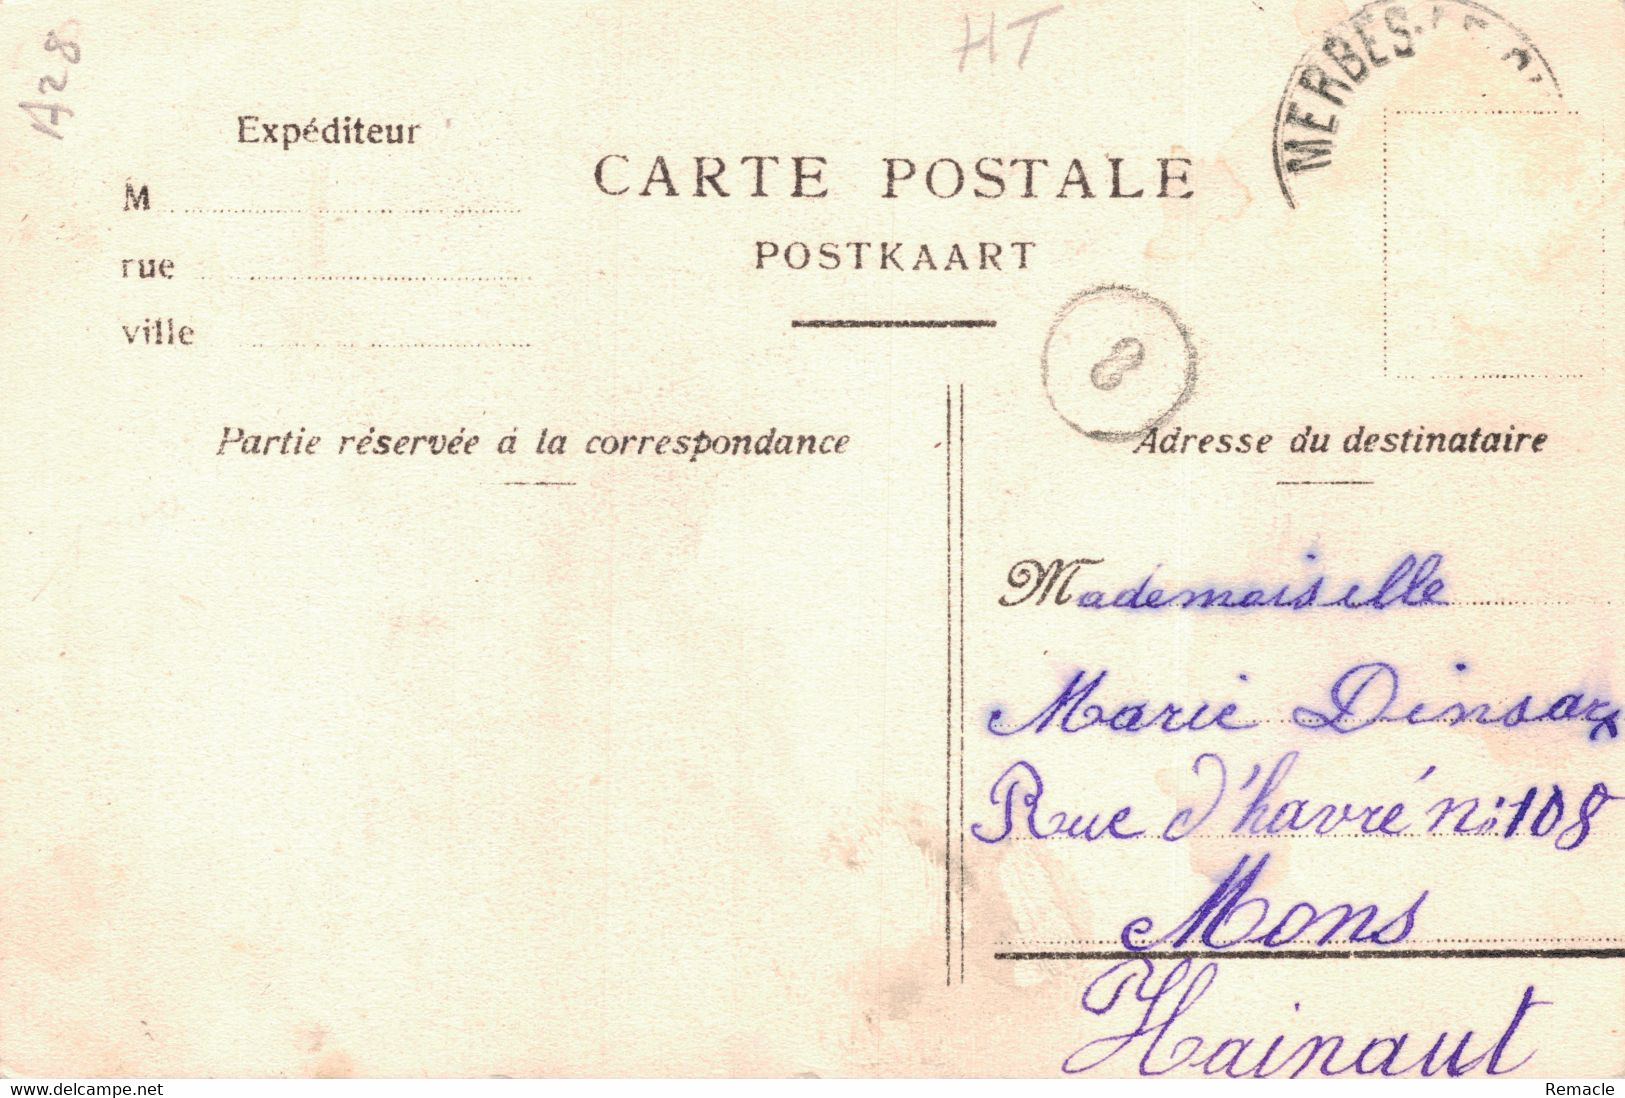 A28
HT
MERBES-
Expéditeur
M
CARTE POSTALE
rue
POSTKAART
ville
8
Partie réservée à la correspondance
Adresse du destinataire
Mademoiselle
Marie Dinsart
Rue d'havré N: 108
Mons
Hainaut
www.delcampe.net
Remacle